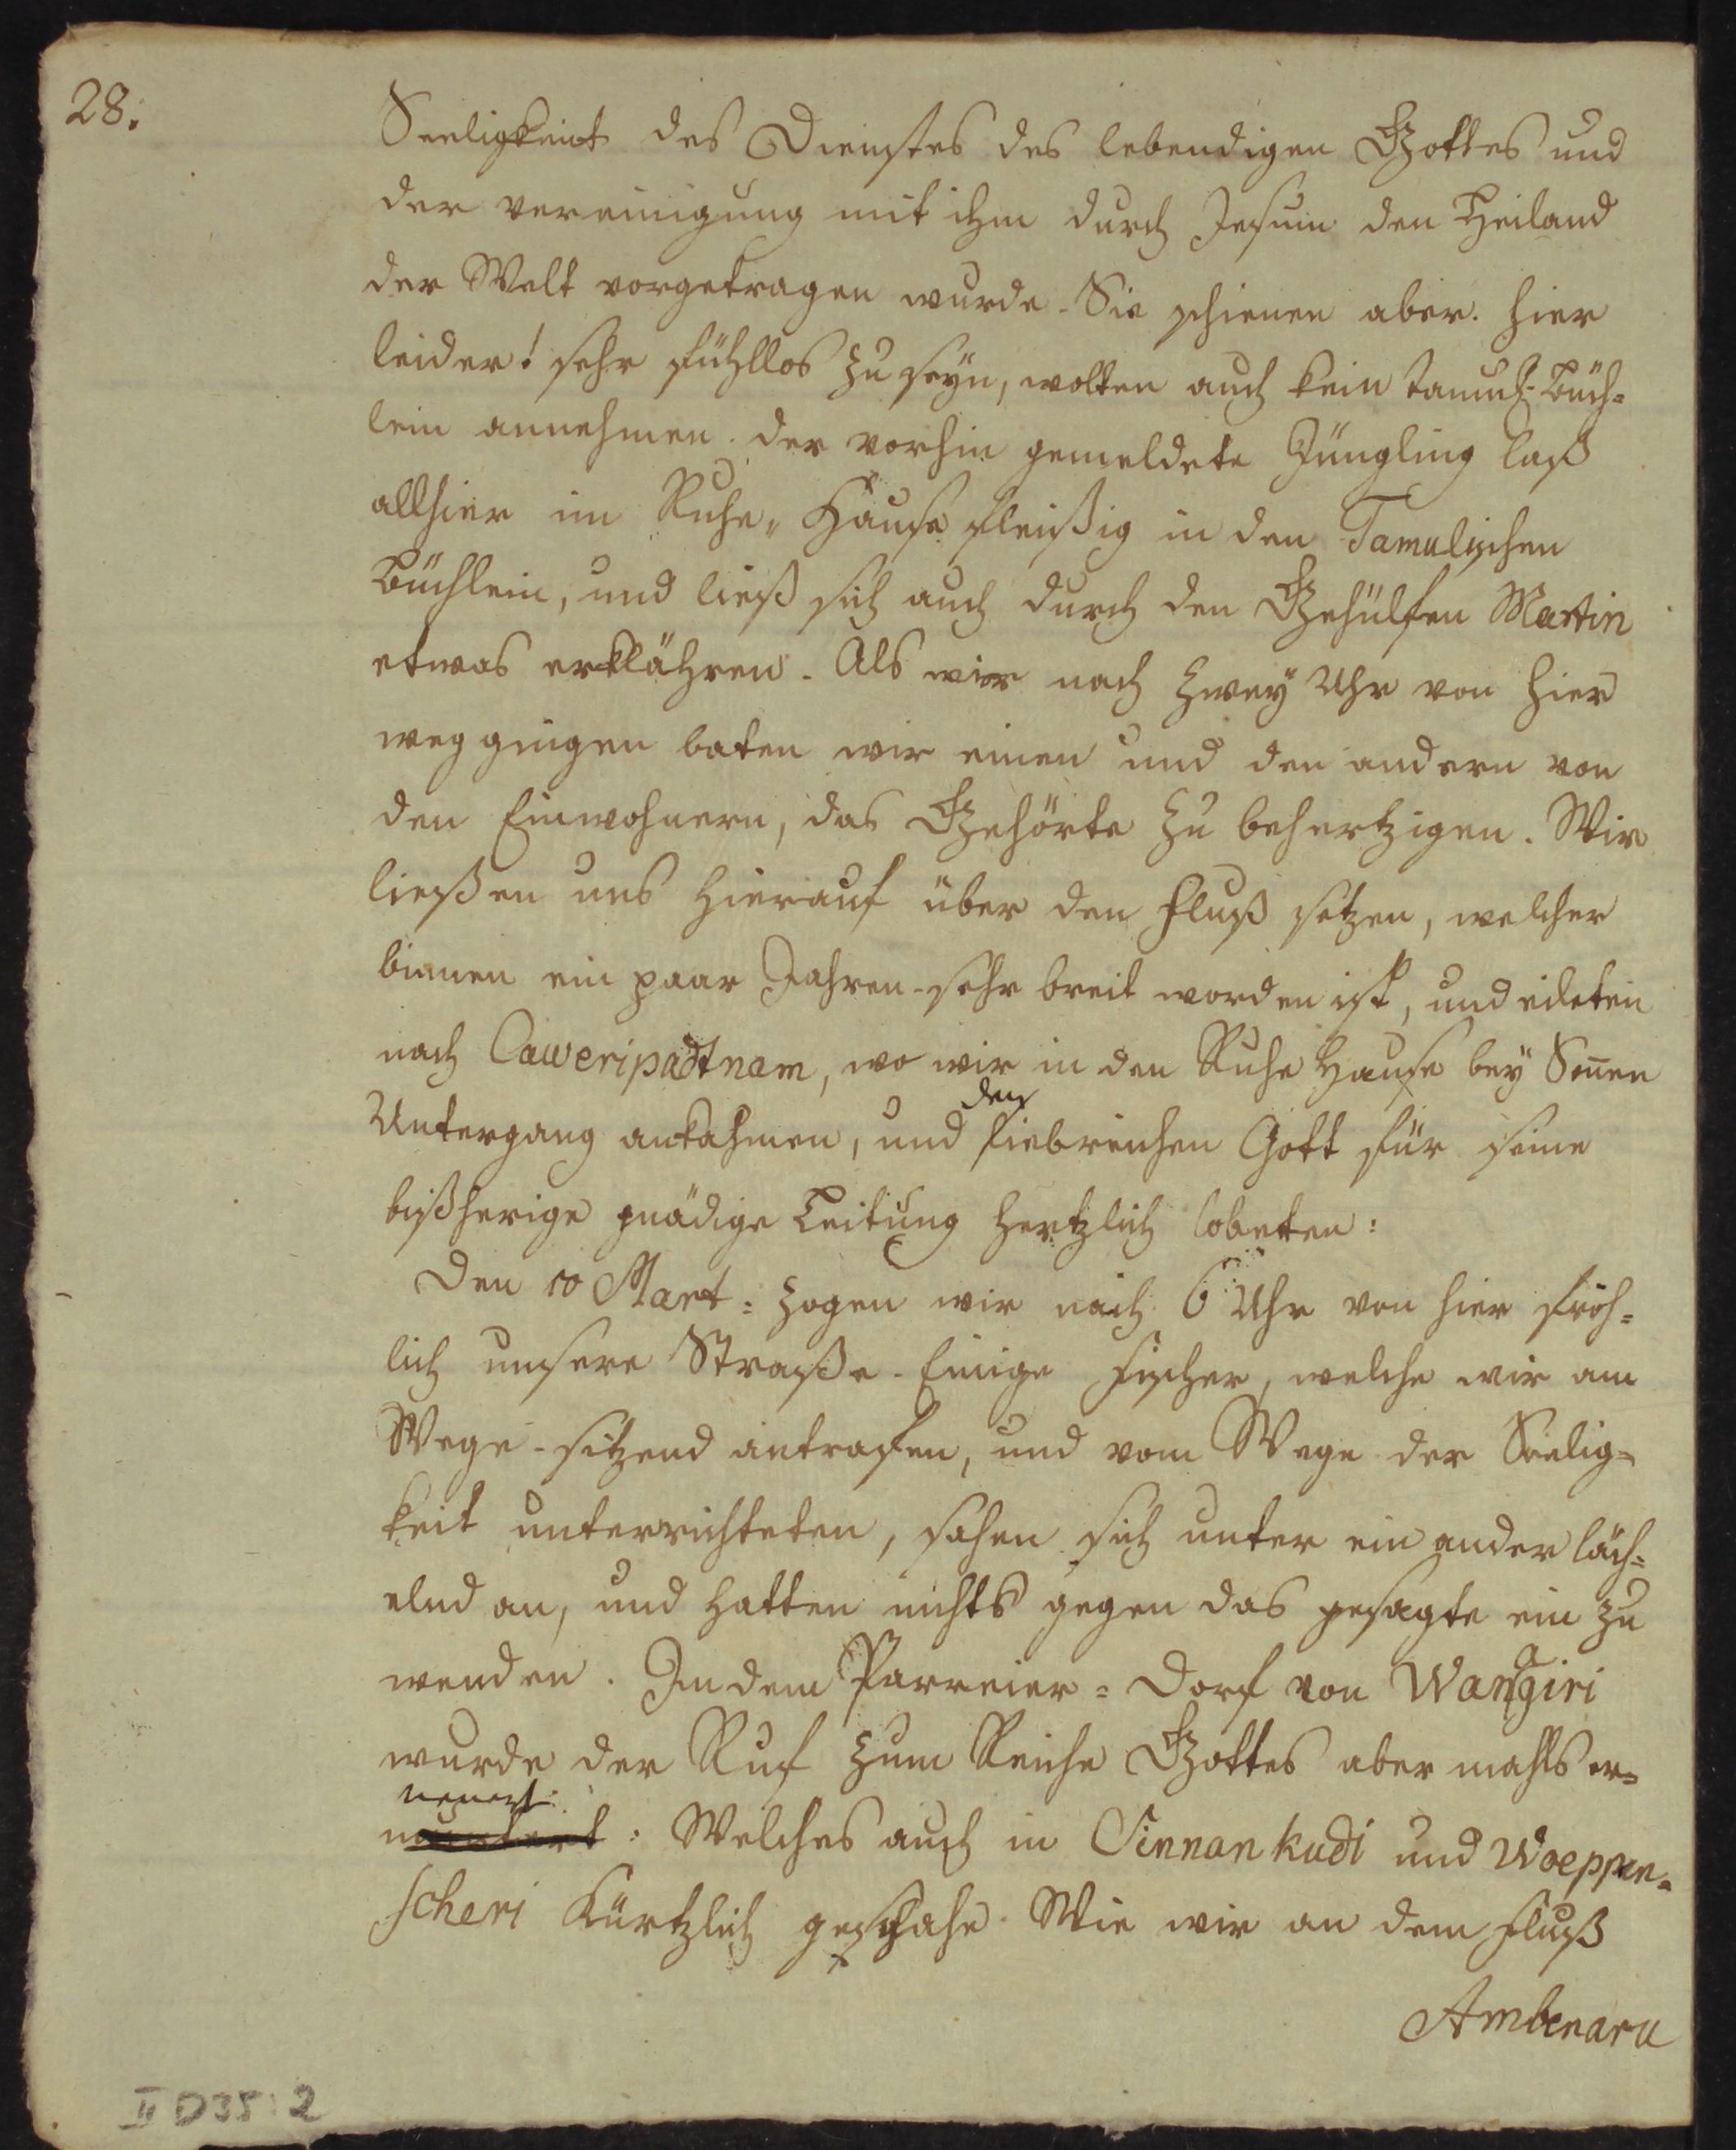 28.
Seeligkeit des Dienstes des lebendigen Gottes und
der vereinigung mit ihm durch Jesum den Heiland
der Welt vorgetragen wurde. Sie schienen aber hier
leider! sehr fühllos zu seyn, wolten auch kein tamul. Büch=
lein annehmen. der vorhin gemeldete Jüngling laß
allhier im Ruhe-Hause fleißig in den Tamulischen
Büchlein, und ließ sich auch durch den Gehülfen Martin
etwas erklähren. Als wir nach zwey Uhr von hier
weg gingen baten wir einen und den andern von
den Einwohnern, das Gehörte zu behertzigen. Wir
ließen uns hierauf über den Fluß setzen, welcher
binnen ein paar Jahren sehr breit worden ist, und eileten
nach Caweripadtnam, wo wir in den Ruhe Hause bey Sonnen
den
Untergang ankahmen, und liebreichen Gott für seine
bißherige gnädige Leitung hertzlich lobeten:
Den 10 Mart: zogen wir nach 6 Uhr von hier fröh=
lich unsere Straße. Einige Fischer, welche wir am
Wege sitzend antrafen, und vom Wege der Seelig=
keit unterrichteten, sahen sich unter ein ander läch=
elnd an, und hatten nichts gegen das gesagte ein zu
wenden. In dem Parreier=Dorf von Wanagiri
wurde der Ruf zum Reiche Gottes aber mahls er=
neuert:
: Welches auch in Sinnankudi und Woeppen=
scheri Kürtzlich geschahe. Wie wir an dem Fluß
Ambenaru
II D35:2